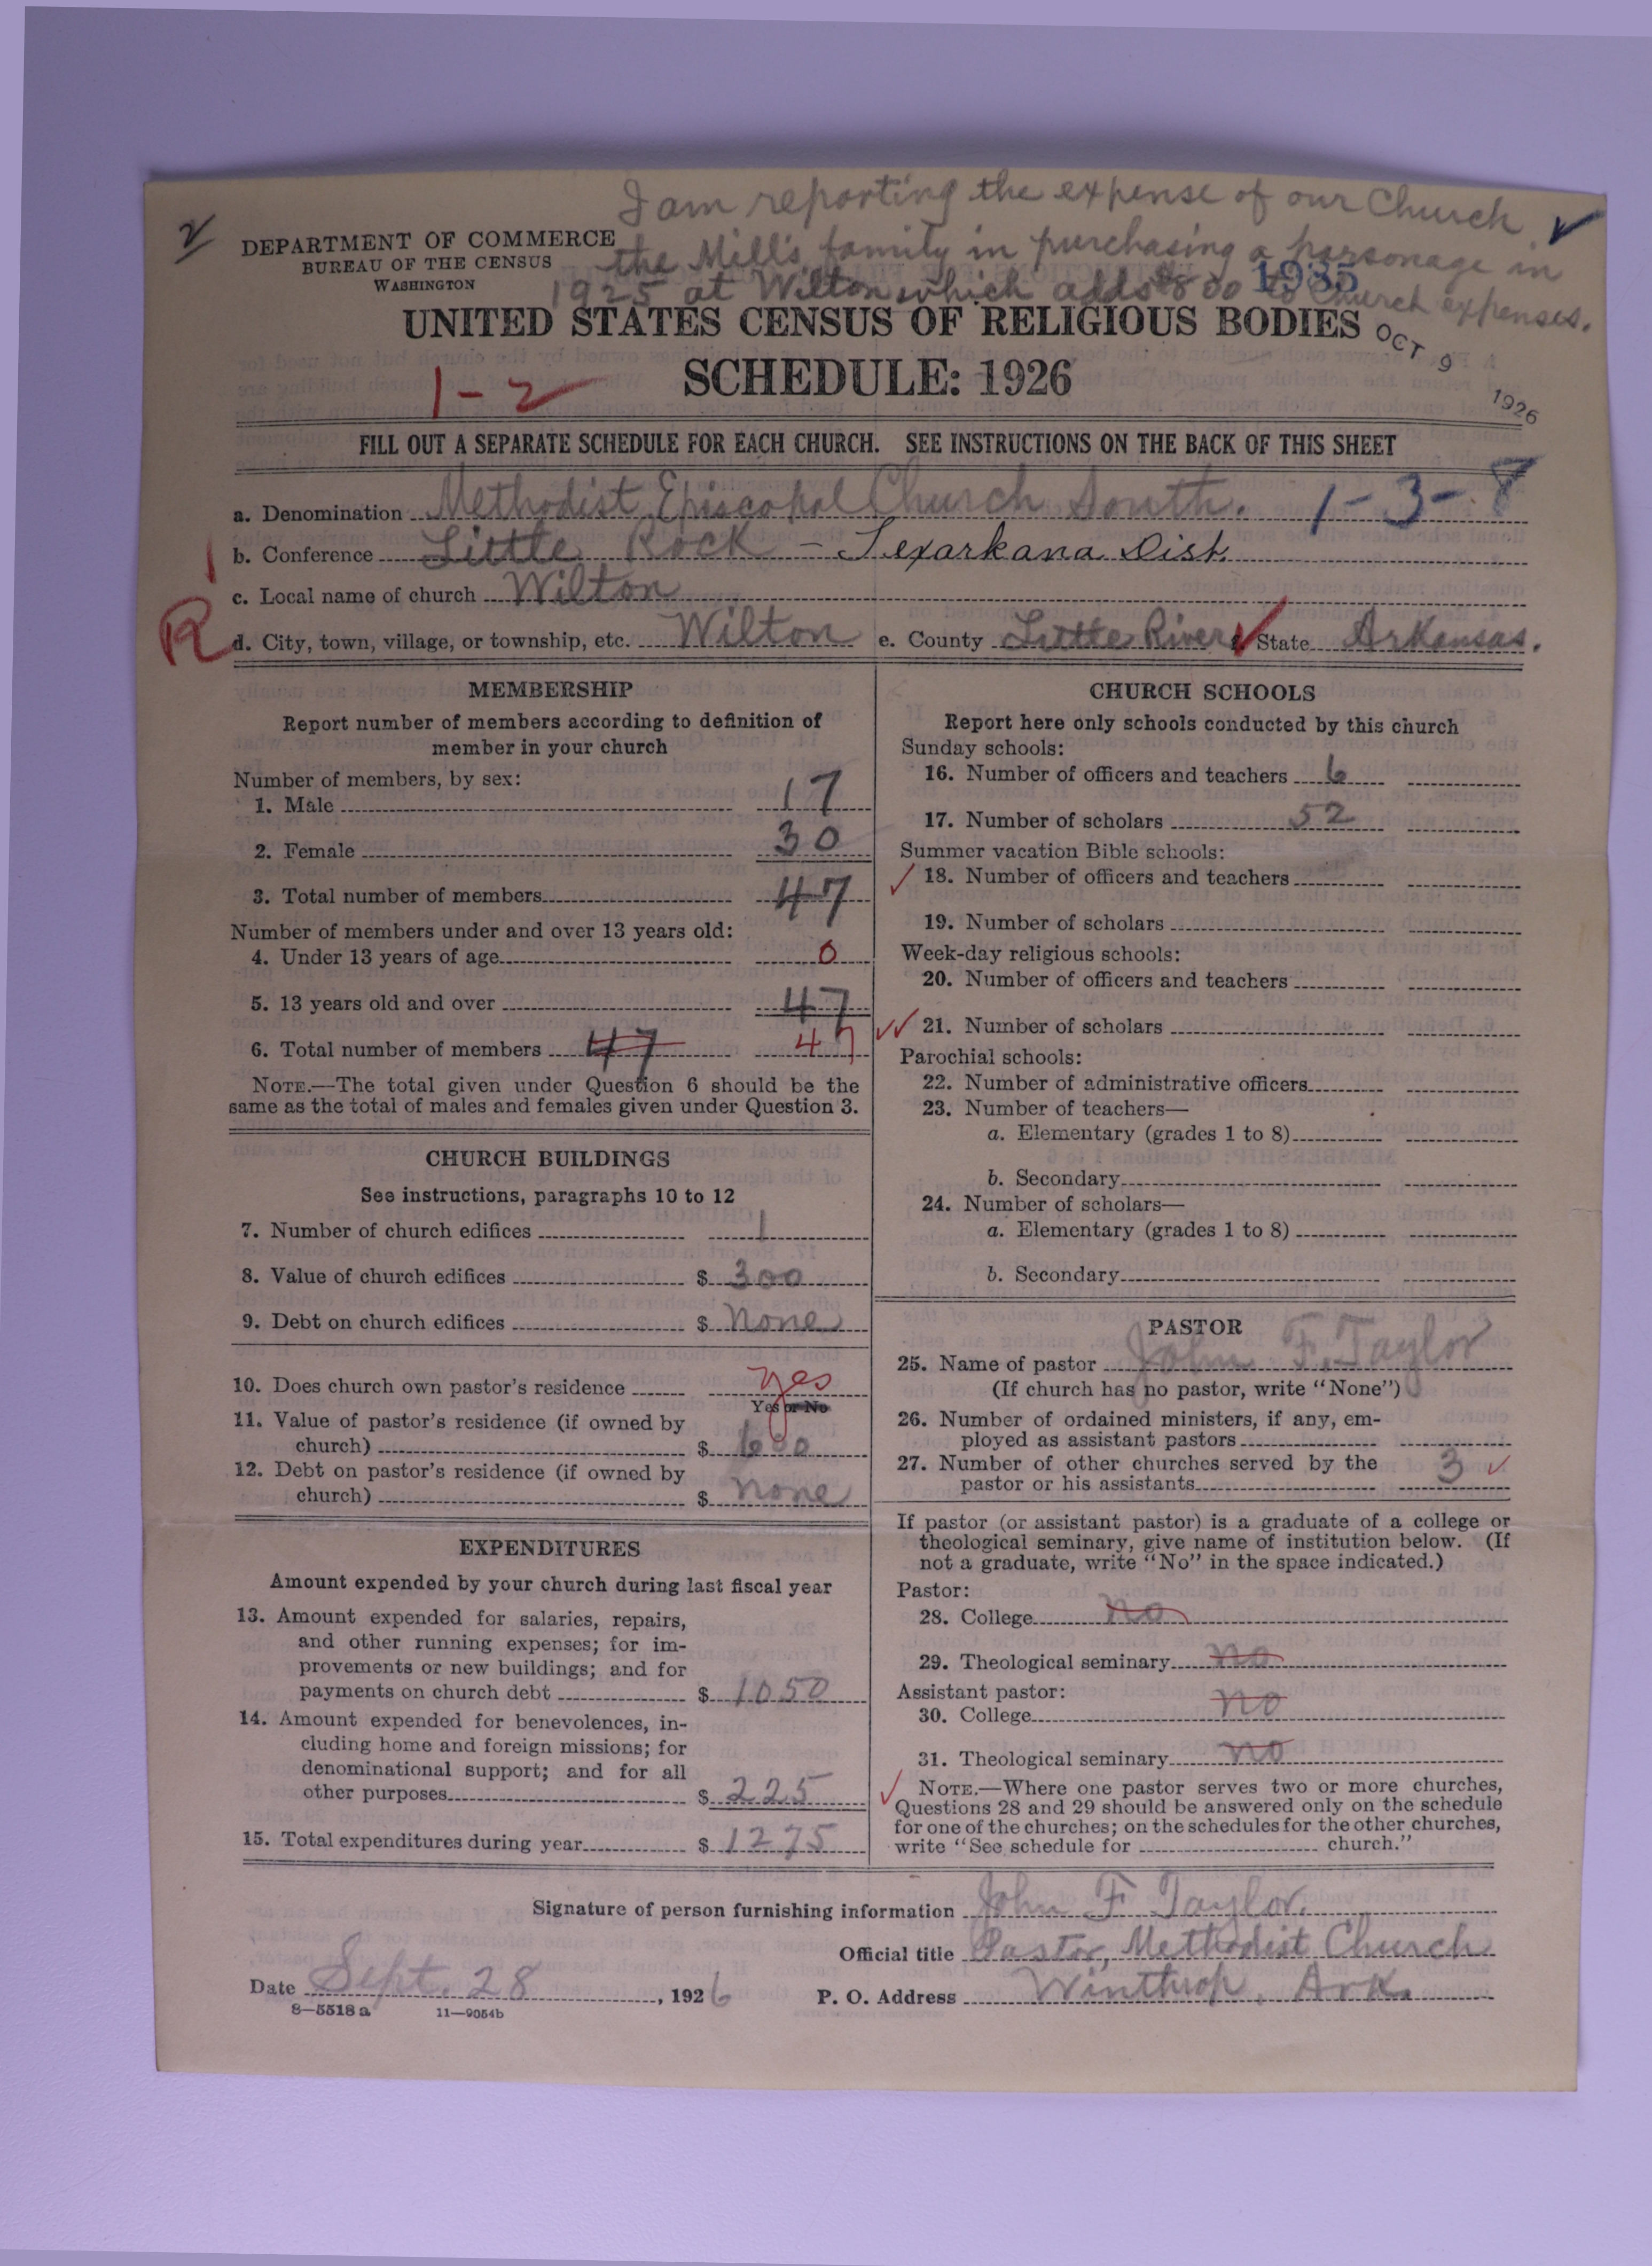 I am reporting the expense of our Church
the Mill's family in purchasing a parsonage in
1925 at Wilton which adds $800 to Church expenses.
DEPARTMENT OF COMMERCE
BUREAU OF THE CENSUS
WASHINGTON
1935
UNITED STATES CENSUS OF RELIGIOUS BODIES
OCT 9 1926
SCHEDULE: 1926
1-2
FILL OUT A SEPARATE SCHEDULE FOR EACH CHURCH. SEE INSTRUCTIONS ON THE BACK OF THIS SHEET
a. Denomination Methodist Episcopal Church South. 1-3-8
b. Conference Little Rock - Texarkana Dist.
c. Local name of church Wilton
R
d. City, town, village, or township, etc. Wilton e. County Little River State Arkansas.
MEMBERSHIP
Report number of members according to definition of
member in your church
Number of members, by sex:
1. Male 17
2. Female 30
3. Total number of members 47
Number of members under and over 13 years old:
4. Under 13 years of age 0
5. 13 years old and over 47
6. Total number of members 47 47
NOTE.—The total given under Question 6 should be the
same as the total of males and females given under Question 3.
CHURCH BUILDINGS
See instructions, paragraphs 10 to 12
7. Number of church edifices 1
8. Value of church edifices $ 300
9. Debt on church edifices $ None
10. Does church own pastor's residence yes
Yes or No
11. Value of pastor's residence (if owned by
church) $ 600
12. Debt on pastor's residence (if owned by
church) $ none
EXPENDITURES
Amount expended by your church during last fiscal year
13. Amount expended for salaries, repairs,
and other running expenses; for im-
provements or new buildings; and for
payments on church debt $ 1050
14. Amount expended for benevolences, in-
cluding home and foreign missions; for
denominational support; and for all
other purposes $ 225
15. Total expenditures during year $ 1275
CHURCH SCHOOLS
Report here only schools conducted by this church
Sunday schools:
16. Number of officers and teachers 6
17. Number of scholars 52
Summer vacation Bible schools:
18. Number of officers and teachers
19. Number of scholars
Week-day religious schools:
20. Number of officers and teachers
21. Number of scholars
Parochial schools:
22. Number of administrative officers
23. Number of teachers—
a. Elementary (grades 1 to 8)
b. Secondary
24. Number of scholars—
a. Elementary (grades 1 to 8)
b. Secondary
PASTOR
25. Name of pastor John F. Taylor
(If church has no pastor, write "None")
26. Number of ordained ministers, if any, em-
ployed as assistant pastors
27. Number of other churches served by the
pastor or his assistants 3
If pastor (or assistant pastor) is a graduate of a college or
theological seminary, give name of institution below. (If
not a graduate, write "No" in the space indicated.)
Pastor:
28. College no
29. Theological seminary no
Assistant pastor:
30. College no
31. Theological seminary no
NOTE.—Where one pastor serves two or more churches,
Questions 28 and 29 should be answered only on the schedule
for one of the churches; on the schedules for the other churches,
write "See schedule for church."
Signature of person furnishing information John F Taylor.
Official title Pastor, Methodist Church
Date Sept. 28, 1926 P. O. Address Winthrop, Ark.
8—5518 a 11—9054b